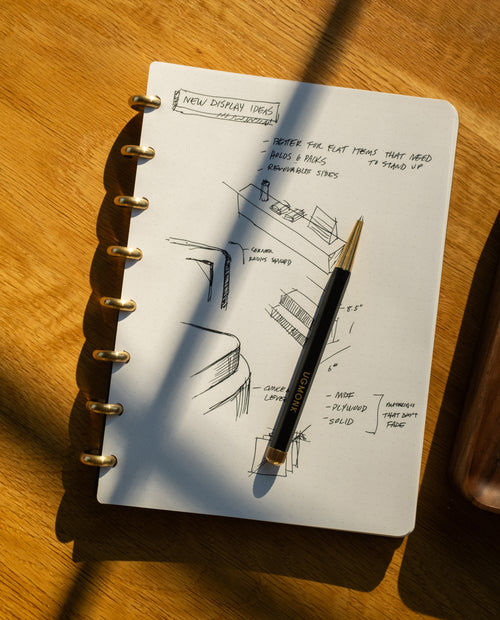 NEW DISPLAY IDEAS
- BETTER FOR FLAT ITEMS THAT NEED
TO STAND UP
- HOLDS 6 PACKS
- REMOVABLE SIDES
CORNER
RADIUS
8.5"
6"
UGMONK
- MDF
- PLYWOOD
- SOLID
MATERIALS
THAT DON'T
FADE